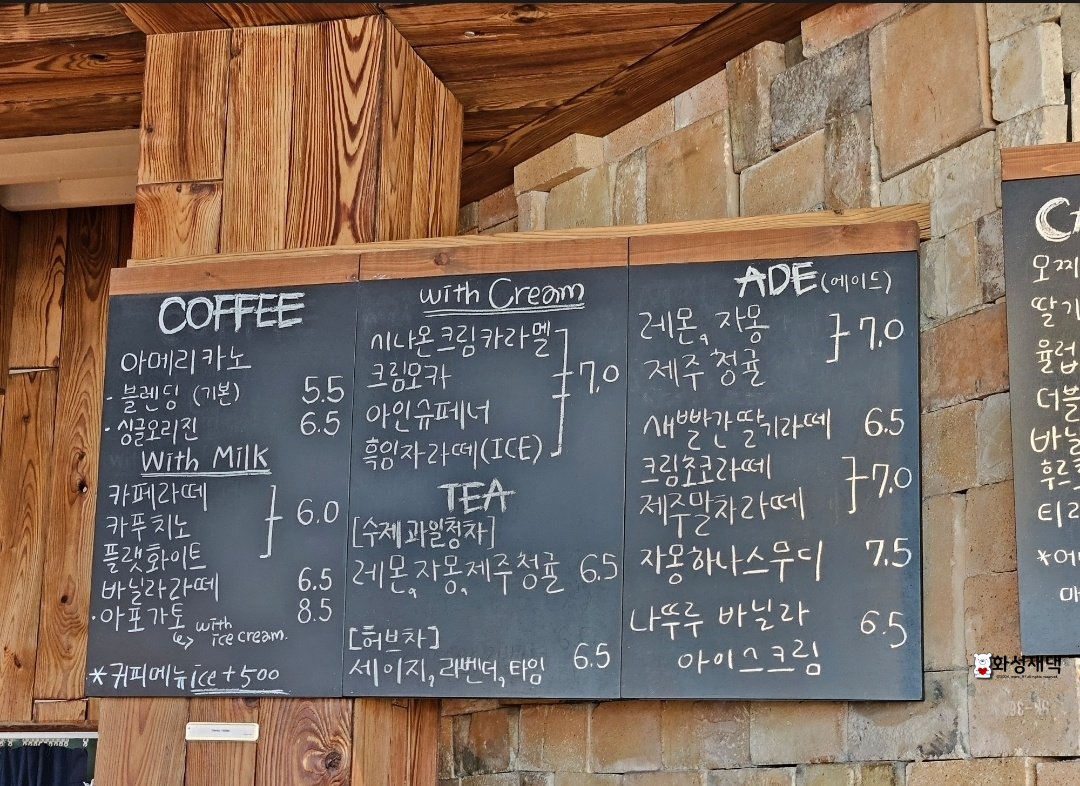 COFFEE
아메리카노
· 블렌딩 (기본) 5.5
· 싱글오리진 6.5
With Milk
카페라떼
카푸치노
플랫화이트
6.0
바닐라라떼 6.5
· 아포가토 8.5
with
ice cream.
* 커피메뉴 ice + 500
with Cream
시나몬크림카라멜
크림모카
아인슈페너
흑임자라떼(ICE)
7.0
TEA
[수제과일청차]
레몬,자몽,제주청귤 6.5
[허브차]
세이지,라벤더,타임 6.5
ADE (에이드)
레몬, 자몽
제주 청귤
7.0
새빨간딸기라떼 6.5
크림초코라떼
제주말차라떼
7.0
자몽하나스무디 7.5
나뚜루 바닐라
아이스크림
6.5
오찌
딸기
율럽
더블
바닐
티라
화성재댁